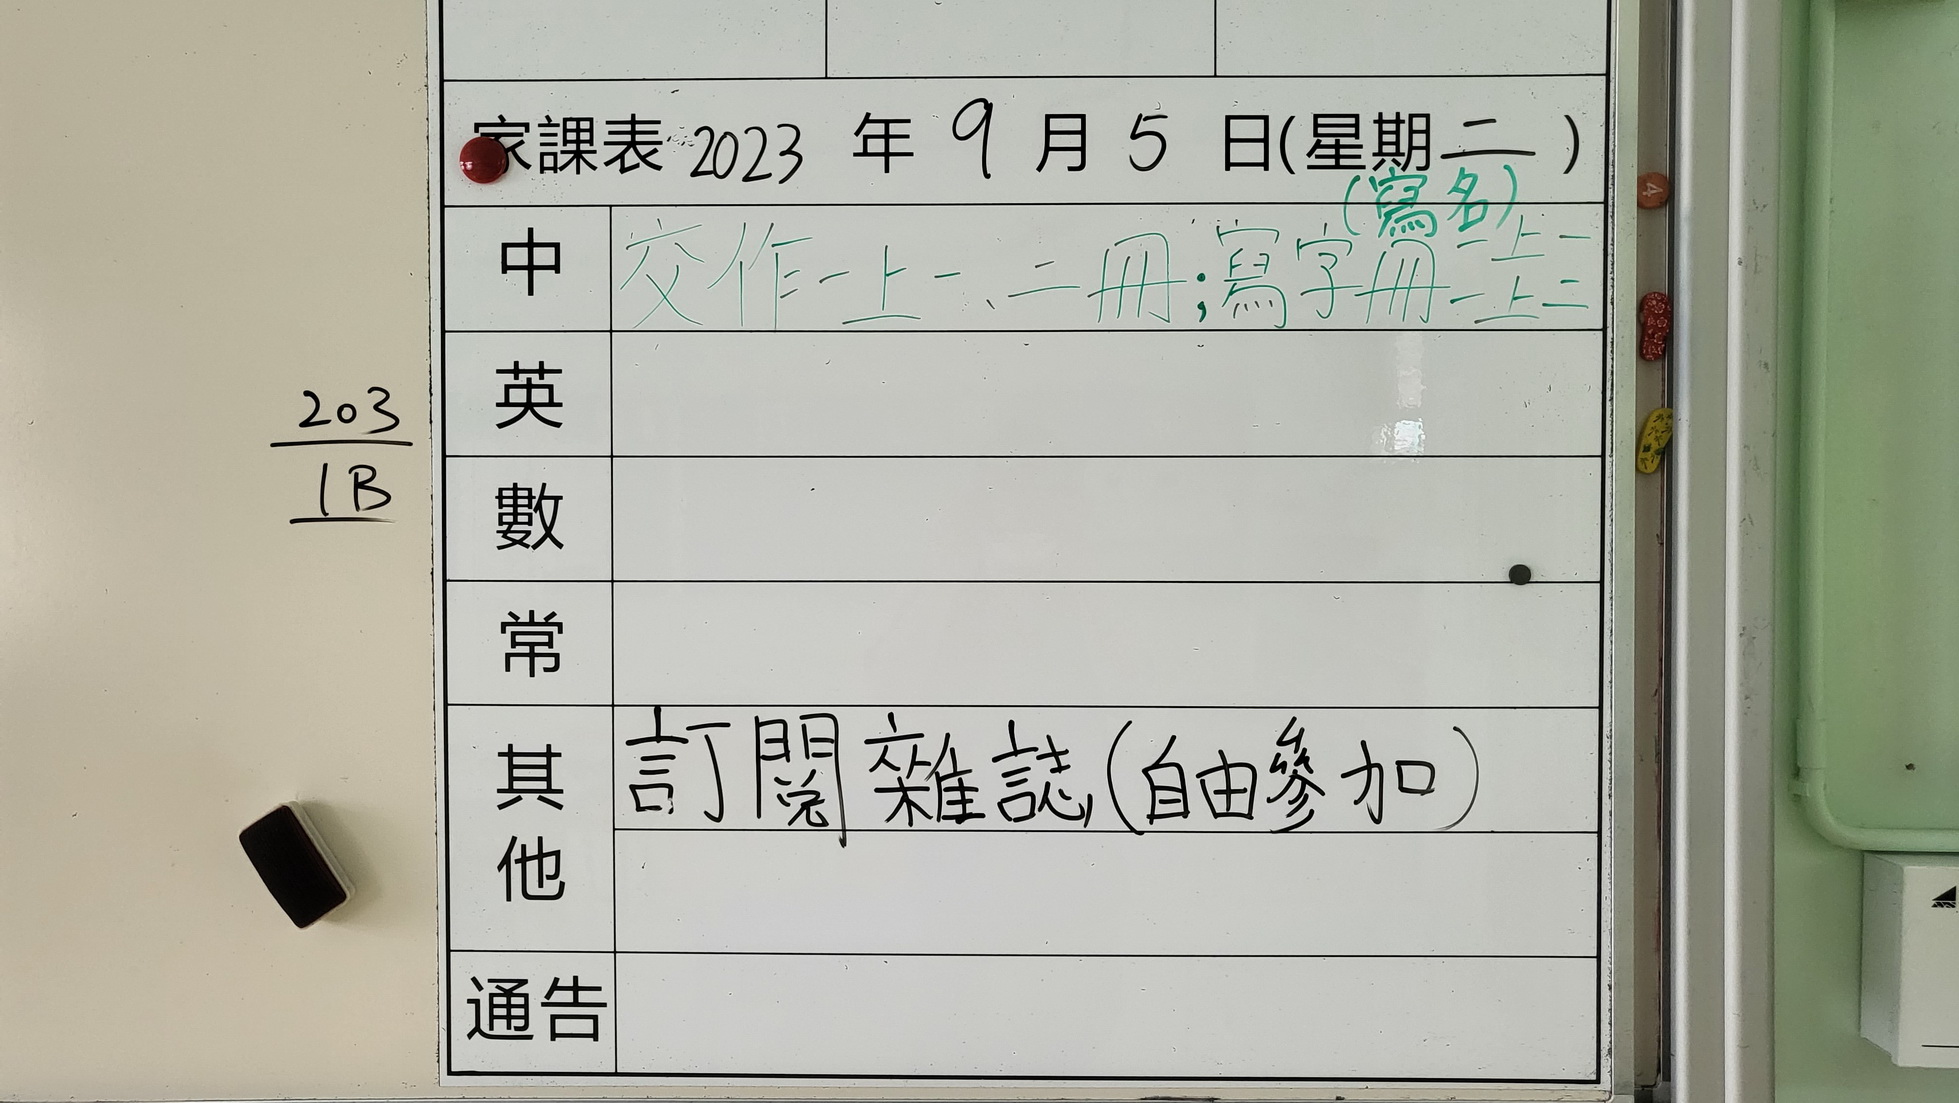 家課表 2023 年 9 月 5 日(星期二)
(寫名)
中 交作一上一、二冊;寫字冊一上一
一上二
英
203
1B
數
常
其他 訂閱雜誌(自由參加)
通告
4